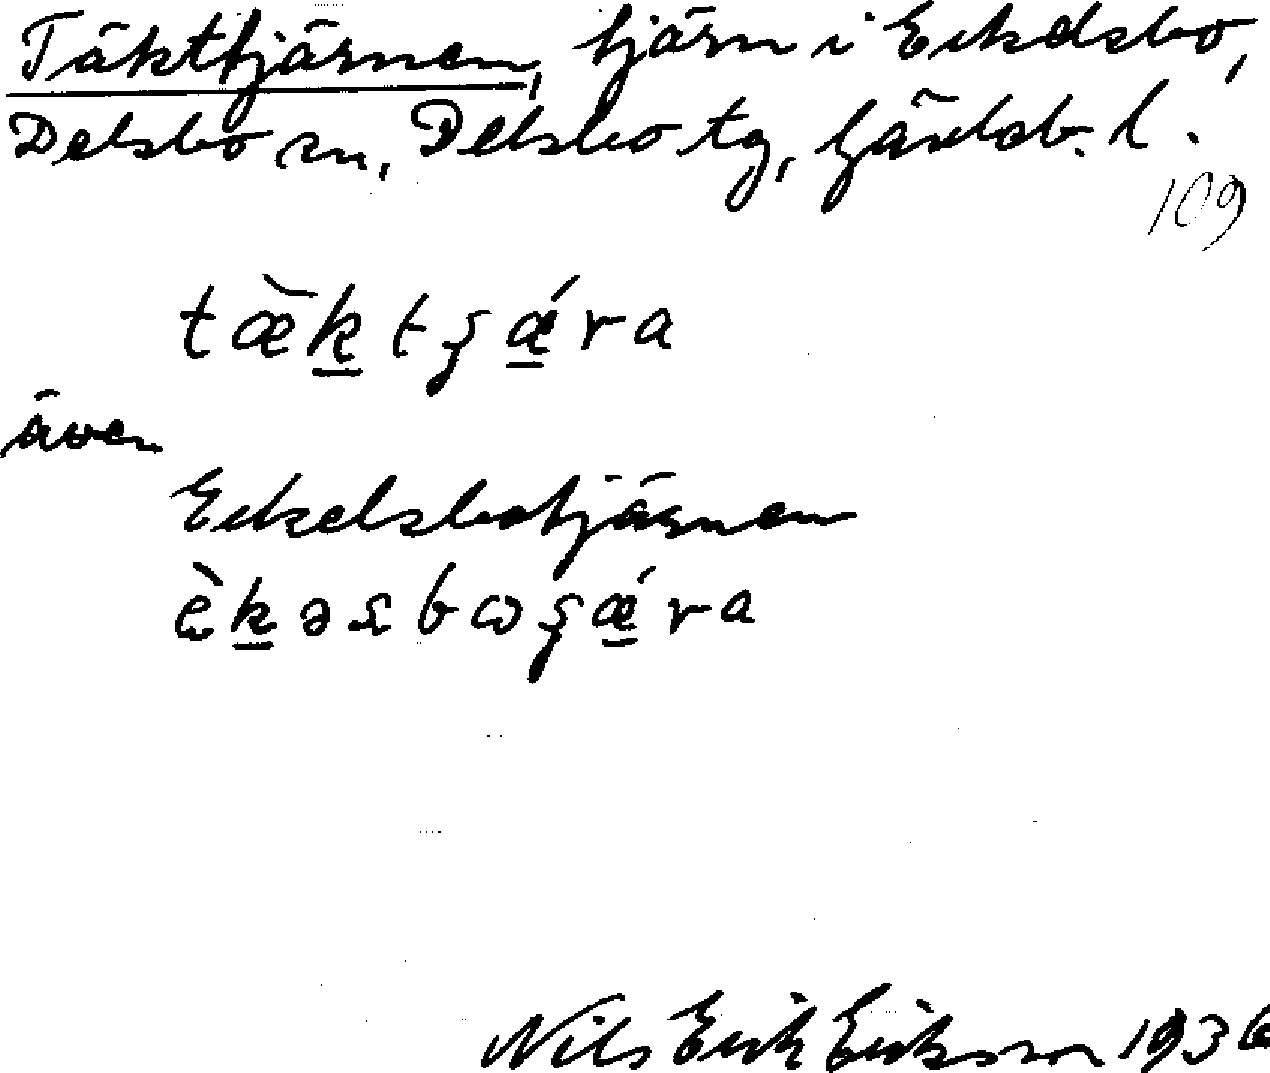 Täkttjärnen, tjärn i Eckelsbo,
Delsbo sn, Delsbo tg, Gävleb. l.
109
tæ̀ḵtʂǽ̱ra
även
Eckelsbotjärnen
èḵəsbωʂǽ̱ra
Nils Erik Eriksson 1936